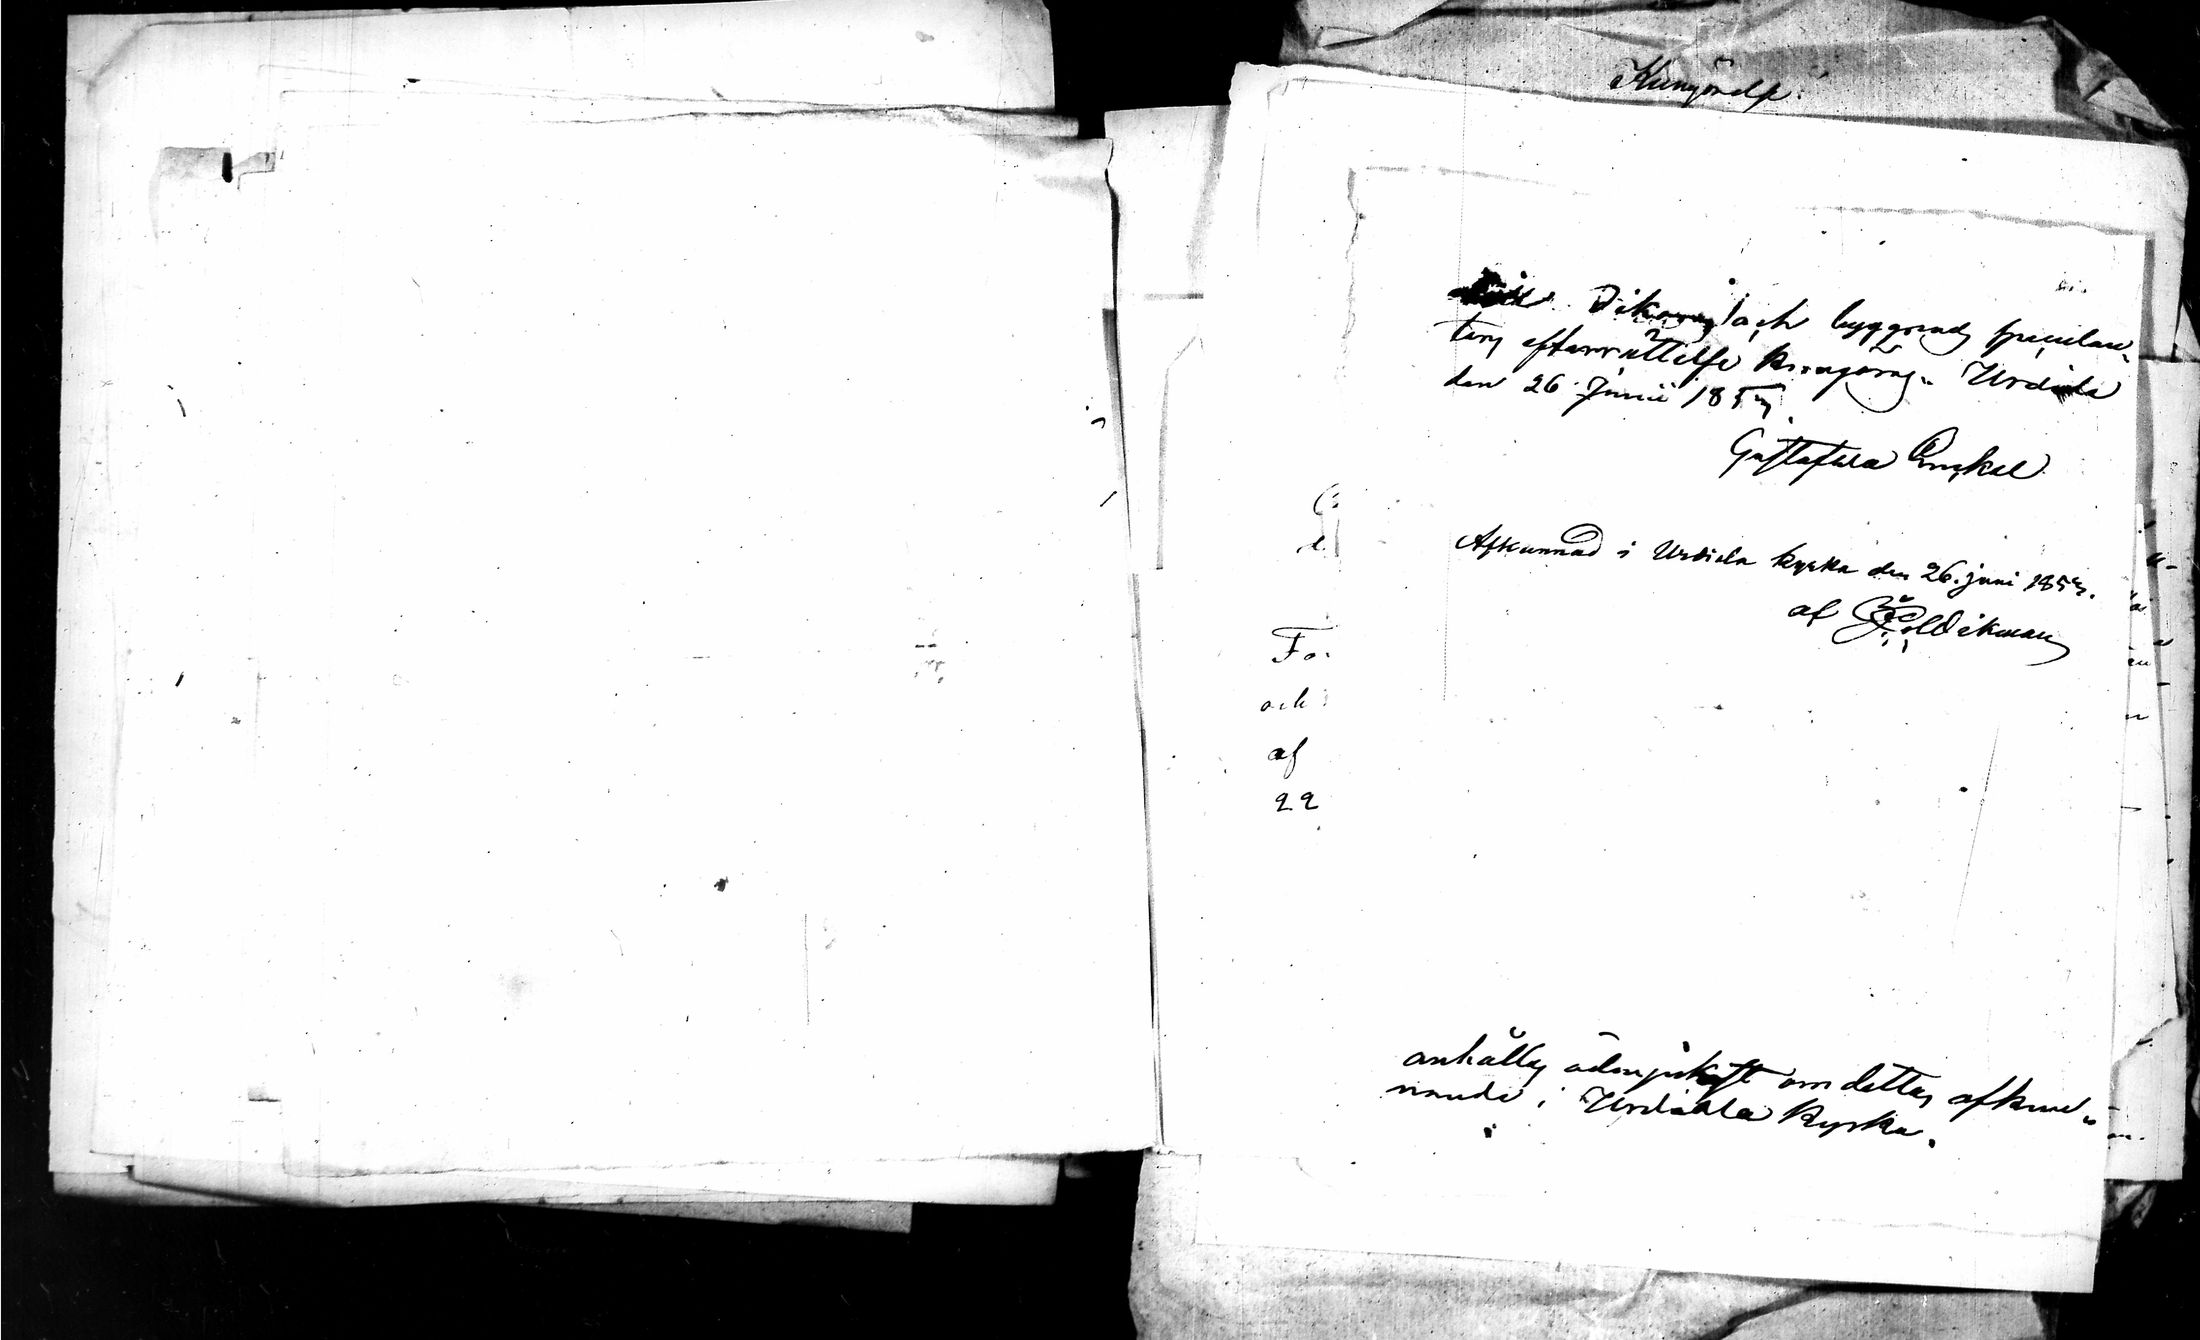 Kungörelse.
och byggnads speculan-
ters efterrättelse kungöres. Urdiala
den 26 Junii 1853.
Gustafva
Afkunnad i Urdiala kyrka den 26. juni 1853.
af
Fo
och
af
22
anhålles ödmjukast om dettas afkun-
nande i Urdiala Kyrka.